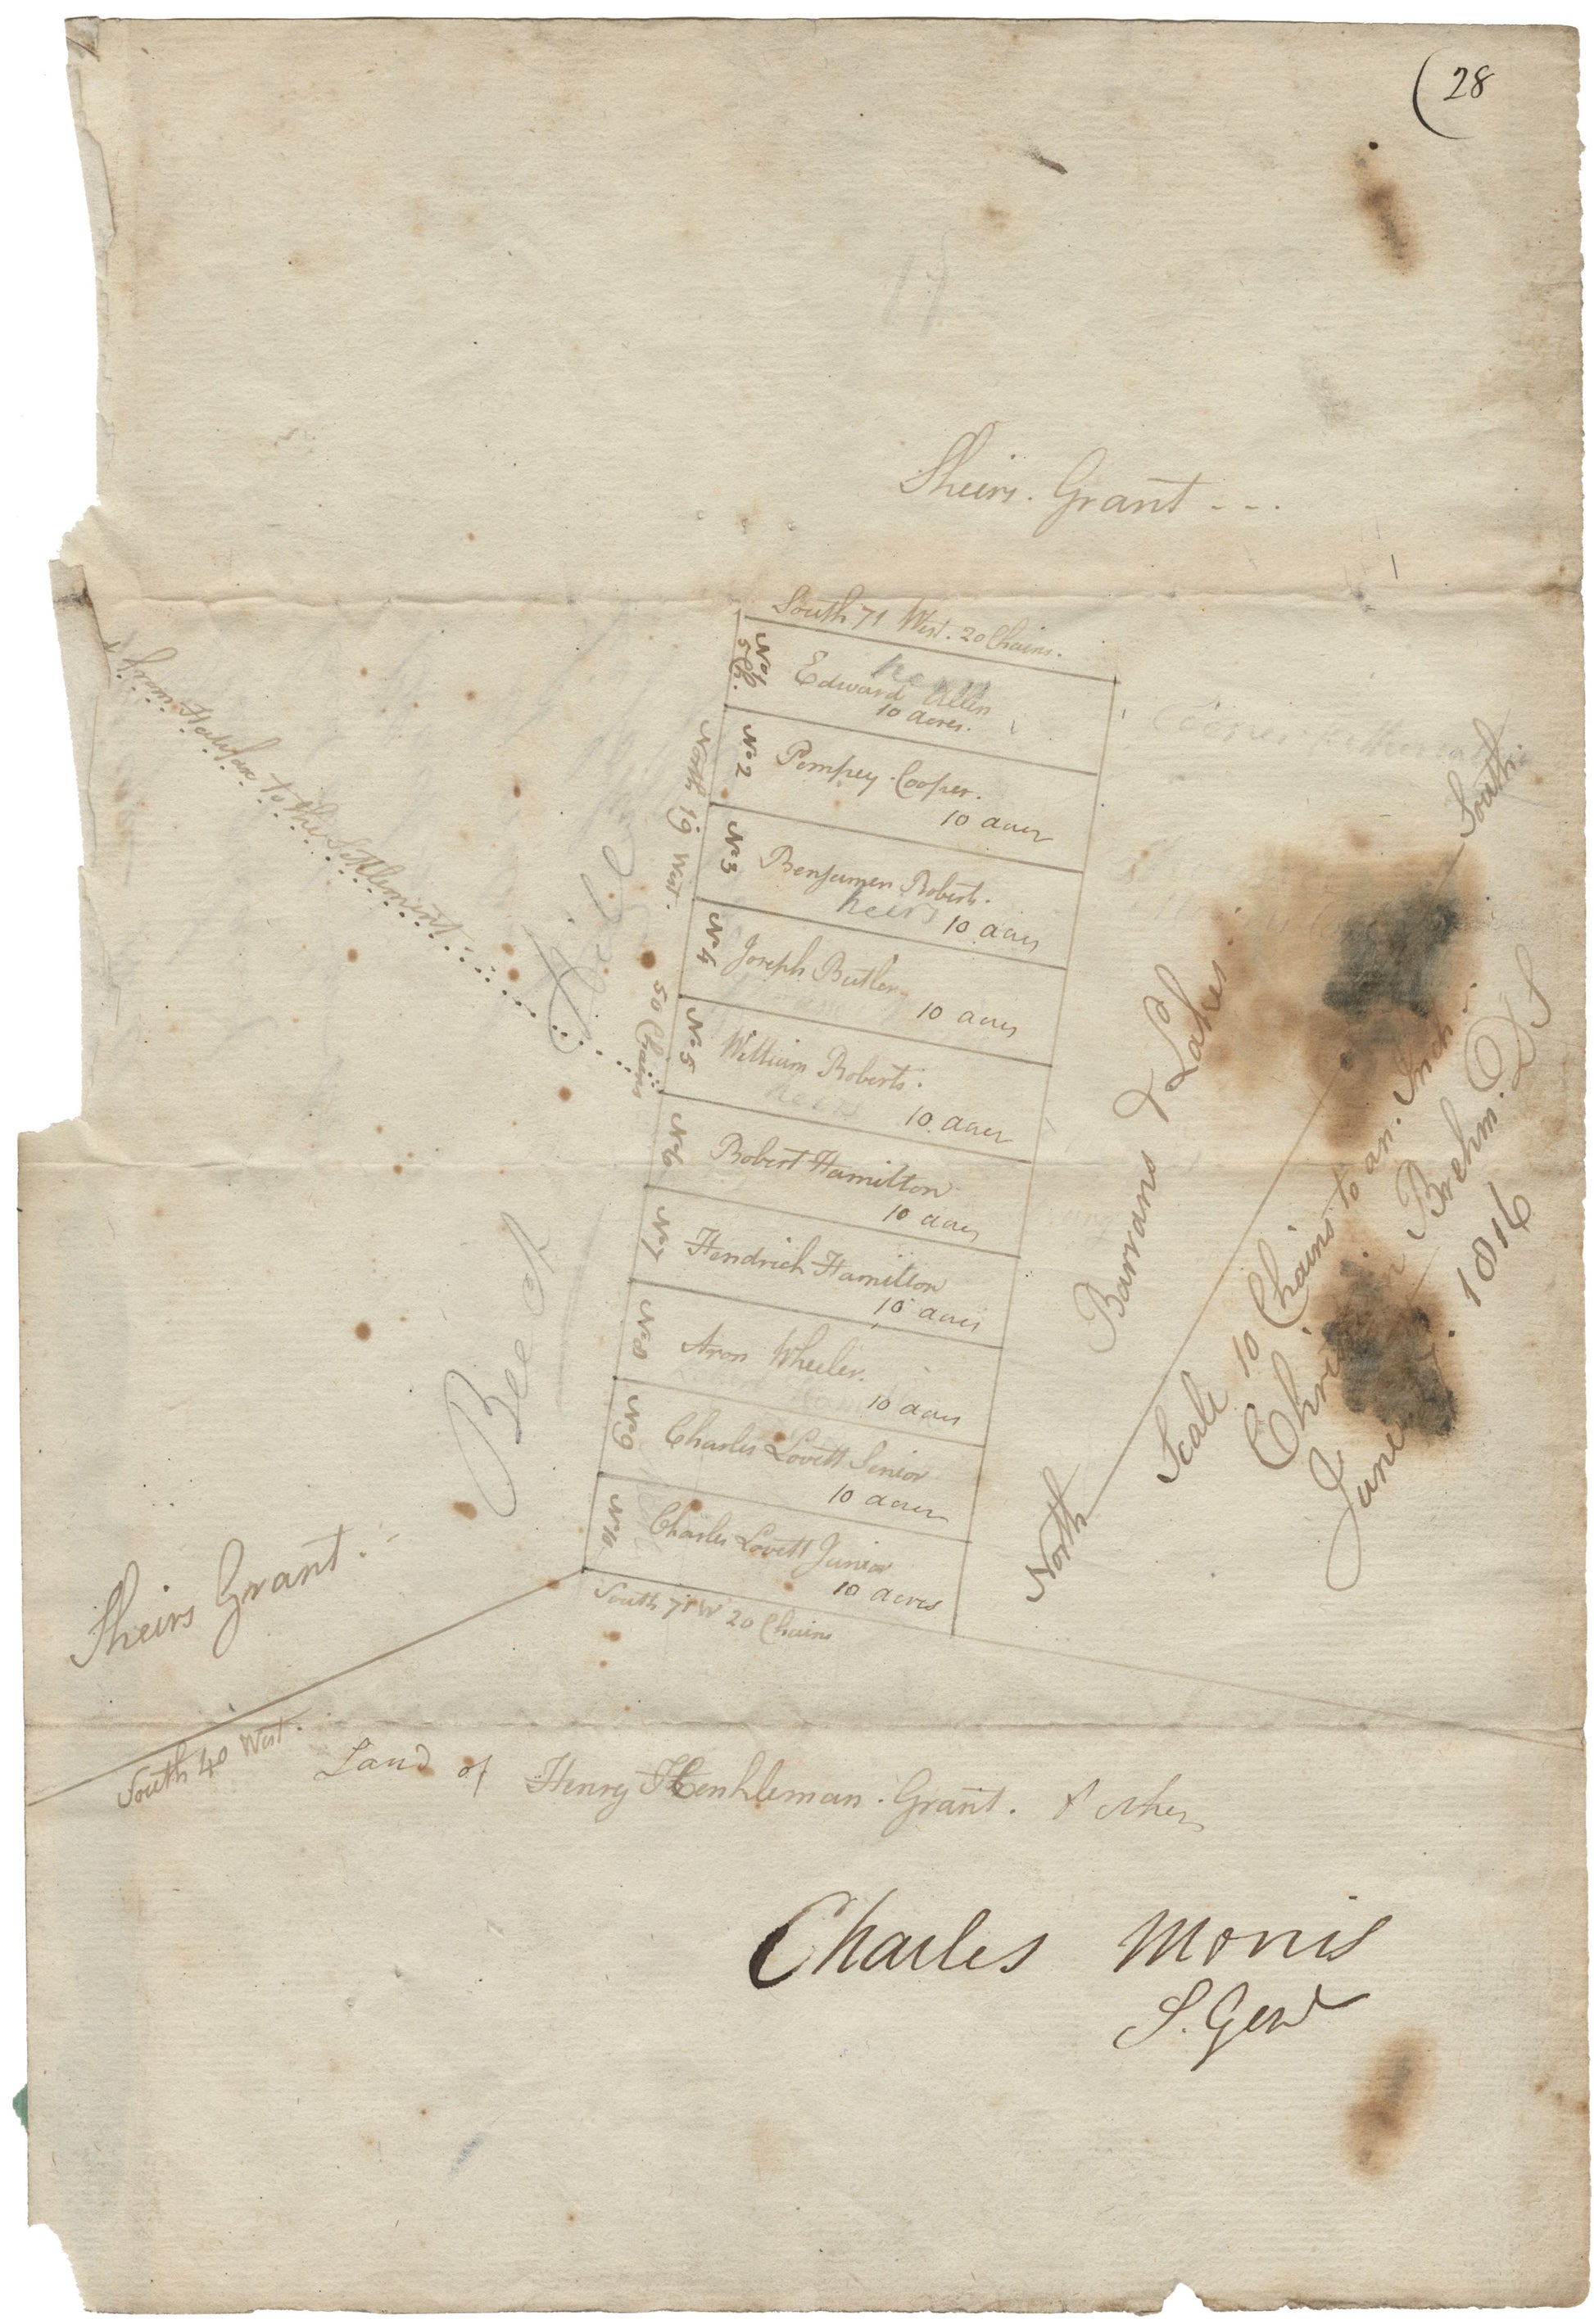 (28
Sheirs. Grant - - -
South 71 West. 20 Chains.
No 1
5 Ch.
heirs
Edward Allen
10 acres.
No 2
Pompey Cooper.
10 acres
No 3
Benjamen Roberts.
heirs
10 acres
No 4
Joseph Butler
10 acres
No 5
William Roberts.
heirs
10 acres
No 6
Robert Hamilton
10 acres
No 7
Hendrich Hamilton
10 acres
No 8
Aron Wheeler.
10 acres
No 9
Charles Lovett Senior
10 acres
No 10
Charles Lovett Junior
10 acres
South 71 W 20 Chains
North 19 West. 50 Chains
from Halifax to the Settlement
Beech Hill
Barrans & Lakes
North
South
Scale 10 Chains to an Inch
Brehm. D S
June 1816
Sheirs Grant.
South 40 West.
Land of Henry Henkleman. Grant. & others
Charles Morris
S. Genl